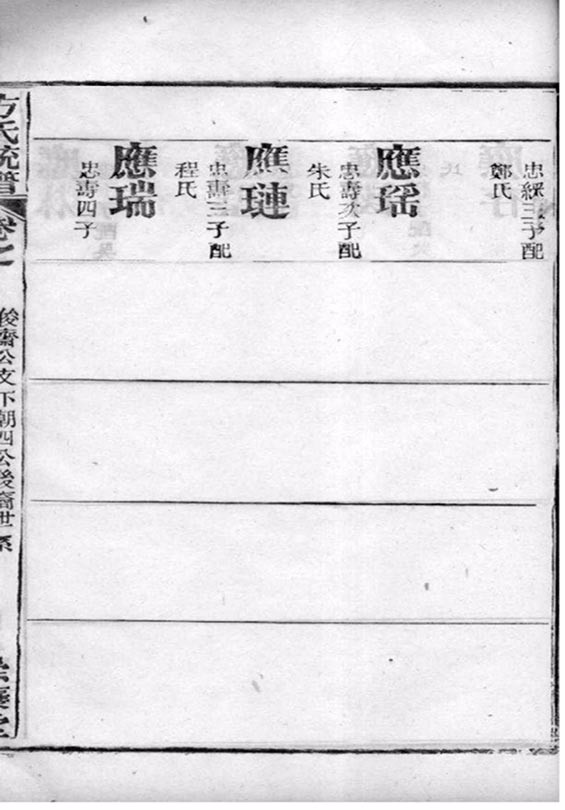 忠綵三子配
鄭氏
應瑶
忠壽次子配
朱氏
應璉
忠壽三子配
程氏
應瑞
忠壽四子
方氏統譜
卷之
俊齋公文下朝四公後裔世系